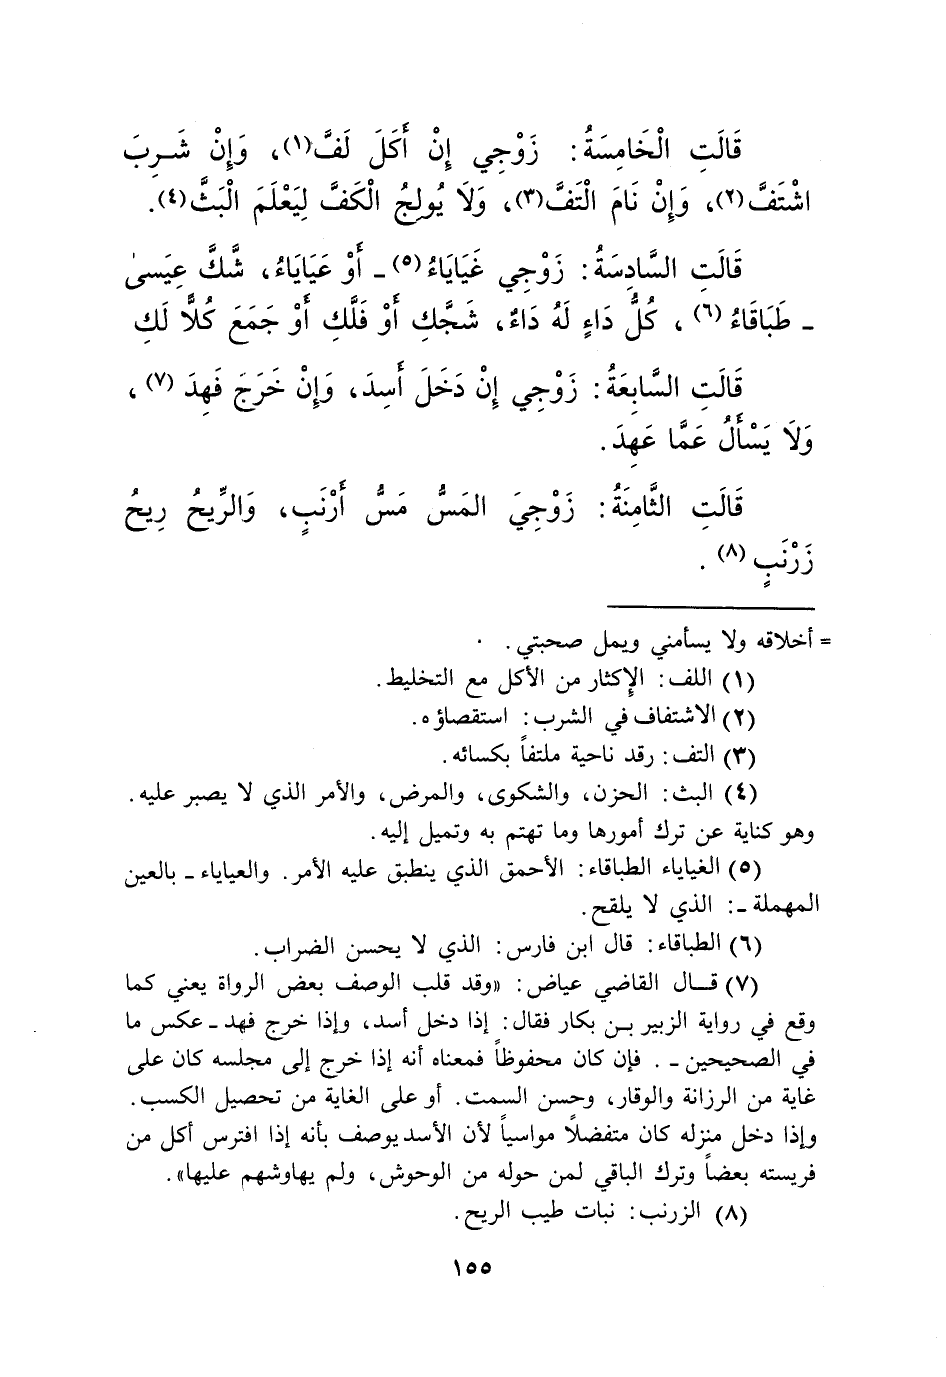 قَالَتِ الْخَامِسَةُ: زَوْجِي إِنْ أَكَلَ لَفَّ(١)، وَإِنْ شَـرِبَ
اشْتَفَّ(٢)، وَإِنْ نَامَ الْتَفَّ(٣)، وَلَا يُولِجُ الْكَفَّ لِيَعْلَمَ الْبَثَّ(٤).
قَالَتِ السَّادِسَةُ: زَوْجِي غَيَايَاءُ(٥) ـ أَوْ عَيَايَاءُ، شَكَّ عِيَسىٰ
ـ طَبَاقَاءُ(٦)، كُلُّ دَاءٍ لَهُ دَاءٌ، شَجَّكِ أَوْ فَلَّكِ أَوْ جَمَعَ كُلًّا لَكِ
قَالَتِ السَّابِعَةُ: زَوْجِي إِنْ دَخَلَ أَسِدَ، وَإِنْ خَرَجَ فَهِدَ (٧)،
وَلَا يَسْأَلُ عَمَّا عَهِدَ.
قَالَتِ الثَّامِنَةُ: زَوْجِيَ المَسُّ مَسُّ أَرْنَبٍ، وَالرِّيحُ رِيحُ
زَرْنَبٍ(٨).
= أخلاقه ولا يسأمني ويمل صحبتي.
(١) اللف: الإكثار من الأكل مع التخليط.
(٢) الاشتفاف في الشرب: استقصاؤه.
(٣) التف: رقد ناحية ملتفاً بكسائه.
(٤) البث: الحزن، والشكوى، والمرض، والأمر الذي لا يصبر عليه.
وهو كناية عن ترك أمورها وما تهتم به وتميل إليه.
(٥) الغياياء الطباقاء: الأحمق الذي ينطبق عليه الأمر. والعياياء ـ بالعين
المهملة ـ: الذي لا يلقح.
(٦) الطباقاء: قال ابن فارس: الذي لا يحسن الضراب.
(٧) قــال القاضي عياض: «وقد قلب الوصف بعض الرواة يعني كما
وقع في رواية الزبير بـن بكار فقال: إذا دخل أسد، وإذا خرج فهد ـ عكس ما
في الصحيحين ـ. فإن كان محفوظاً فمعناه أنه إذا خرج إلى مجلسه كان على
غاية من الرزانة والوقار، وحسن السمت. أو على الغاية من تحصيل الكسب.
وإذا دخل منزله كان متفضلًا مواسياً لأن الأسد يوصف بأنه إذا افترس أكل من
فريسته بعضاً وترك الباقي لمن حوله من الوحوش، ولم يهاوشهم عليها».
(٨) الزرنب: نبات طيب الريح.
١٥٥